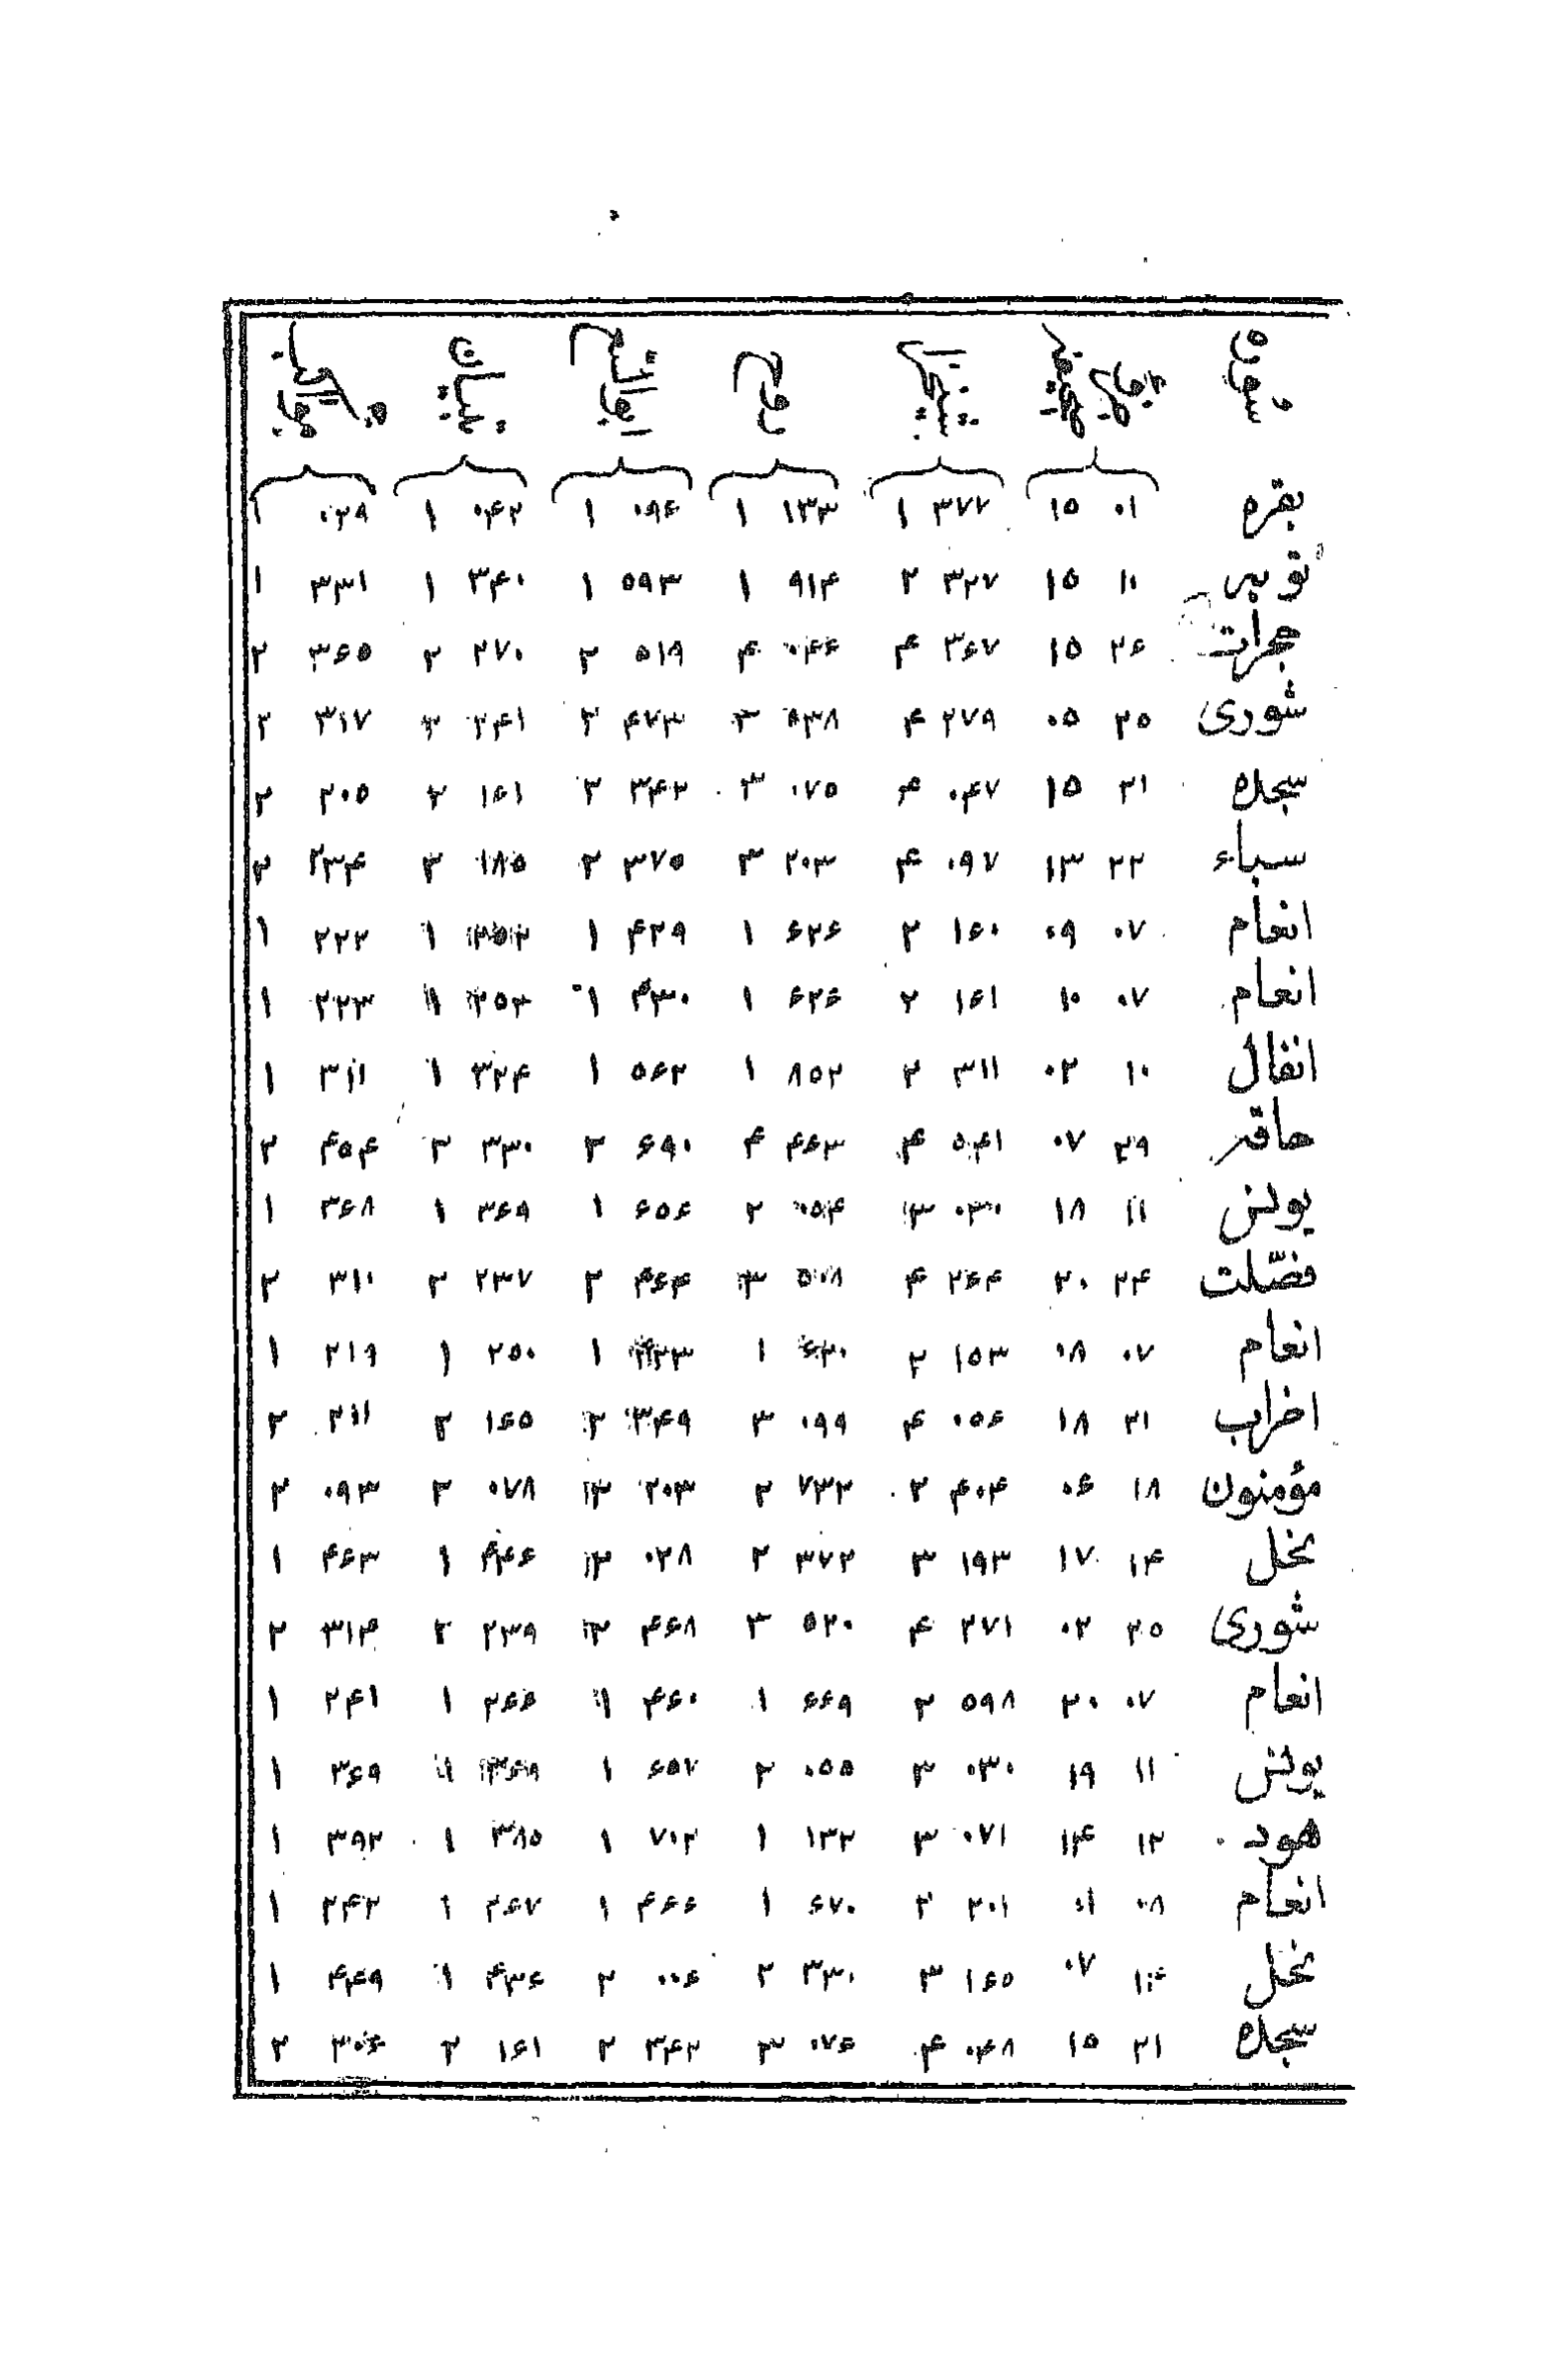 سوره
بقره ۰۱ ۱۵ ۳۷۷ ۱ ۱۳۳ ۱ ۰۹۶ ۱ ۰۴۲ ۱ ۰۲۹ ۱
توبه ۱۰ ۱۵ ۳۲۷ ۲ ۹۱۴ ۱ ۵۹۳ ۱ ۳۴۰ ۱ ۳۳۱ ۱
حجرات ۲۶ ۱۵ ۳۶۷ ۴ ۰۴۶ ۴ ۵۱۹ ۲ ۲۷۰ ۲ ۳۶۵ ۲
شوری ۲۵ ۰۵ ۲۷۹ ۴ ۵۳۸ ۳ ۴۷۳ ۲ ۲۴۱ ۲ ۳۱۷ ۲
سجده ۲۱ ۱۵ ۰۴۷ ۴ ۰۷۵ ۳ ۳۴۲ ۲ ۱۶۱ ۲ ۲۰۵ ۲
سباء ۲۲ ۱۳ ۰۹۷ ۴ ۲۰۳ ۳ ۳۷۵ ۲ ۱۸۵ ۲ ۲۳۴ ۲
انعام ۰۷ ۰۹ ۱۶۰ ۲ ۶۲۶ ۱ ۴۲۹ ۱ ۲۵۲ ۱ ۲۲۲ ۱
انعام ۰۷ ۱۰ ۱۶۱ ۲ ۶۲۶ ۱ ۴۳۰ ۱ ۲۵۳ ۱ ۲۲۳ ۱
انفال ۱۰ ۰۲ ۳۱۱ ۲ ۸۵۲ ۱ ۵۶۲ ۱ ۳۲۴ ۱ ۳۱۱ ۱
حاقه ۲۹ ۰۷ ۵۴۱ ۴ ۴۶۳ ۴ ۶۹۰ ۲ ۳۳۰ ۲ ۴۵۴ ۲
یونس ۱۱ ۱۸ ۰۳۰ ۳ ۰۵۴ ۲ ۶۵۶ ۱ ۳۶۹ ۱ ۳۶۸ ۱
فصّلت ۲۴ ۲۰ ۲۶۴ ۴ ۵۰۸ ۳ ۴۶۴ ۲ ۲۳۷ ۲ ۳۱۰ ۲
انعام ۰۷ ۰۸ ۱۵۳ ۲ ۶۲۰ ۱ ۴۲۳ ۱ ۲۵۰ ۱ ۲۱۹ ۱
احزاب ۲۱ ۱۸ ۰۵۶ ۴ ۰۹۹ ۳ ۳۴۹ ۲ ۱۶۵ ۲ ۲۱۱ ۲
مؤمنون ۱۸ ۰۶ ۴۰۴ ۳ ۷۳۲ ۲ ۲۰۳ ۲ ۰۷۸ ۲ ۰۹۳ ۲
نحل ۱۴ ۱۷ ۱۹۳ ۳ ۳۷۲ ۲ ۰۲۸ ۲ ۴۴۶ ۱ ۴۶۳ ۱
شوری ۲۵ ۰۲ ۲۷۱ ۴ ۵۲۰ ۳ ۴۶۸ ۲ ۲۳۹ ۲ ۳۱۴ ۲
انعام ۰۷ ۲۰ ۵۹۸ ۲ ۶۶۹ ۱ ۴۶۰ ۱ ۲۶۶ ۱ ۲۴۱ ۱
یونس ۱۱ ۱۹ ۰۳۰ ۳ ۰۵۵ ۲ ۶۵۷ ۱ ۳۶۹ ۱ ۳۶۹ ۱
هود ۱۲ ۱۴ ۰۷۱ ۳ ۱۳۲ ۱ ۷۰۲ ۱ ۳۸۵ ۱ ۳۹۲ ۱
انعام ۰۸ ۰۱ ۲۰۱ ۲ ۶۷۰ ۱ ۴۶۶ ۱ ۲۶۷ ۱ ۲۴۲ ۱
نحل ۱۴ ۰۷ ۱۶۵ ۳ ۳۳۰ ۲ ۰۰۶ ۲ ۴۳۶ ۱ ۴۴۹ ۱
سجده ۲۱ ۱۵ ۰۴۸ ۴ ۰۷۶ ۳ ۳۴۲ ۲ ۱۶۱ ۲ ۲۰۶ ۲